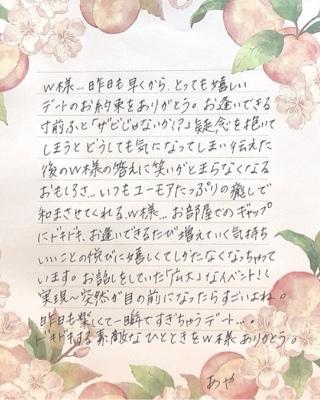 W様…昨日も早くから、とっても嬉しい
デートのお約束をありがとう。お逢いできる
寸前ふと「サビじゃないか!?」疑念を抱いて
しまうとどうしても気になってしまい伝えた
後のW様の答えに笑いがとまらなくなる
おもしろさ…いつもユーモアたっぷりの癒しで
和ませてくれるW様…お部屋でのギャップ
にドキドキ、お逢いできるたび増えていく気持ち
いいことの悦びに嬉しくてしかたなくなちゃって
います。お話しをしていた「 」なイベント!く
実現〜突然が目の前になったらすごいよね。
昨日も楽しくて一瞬ですぎちゃうデート…。
ドキドキする素敵なひとときをW様ありがとう。
あや